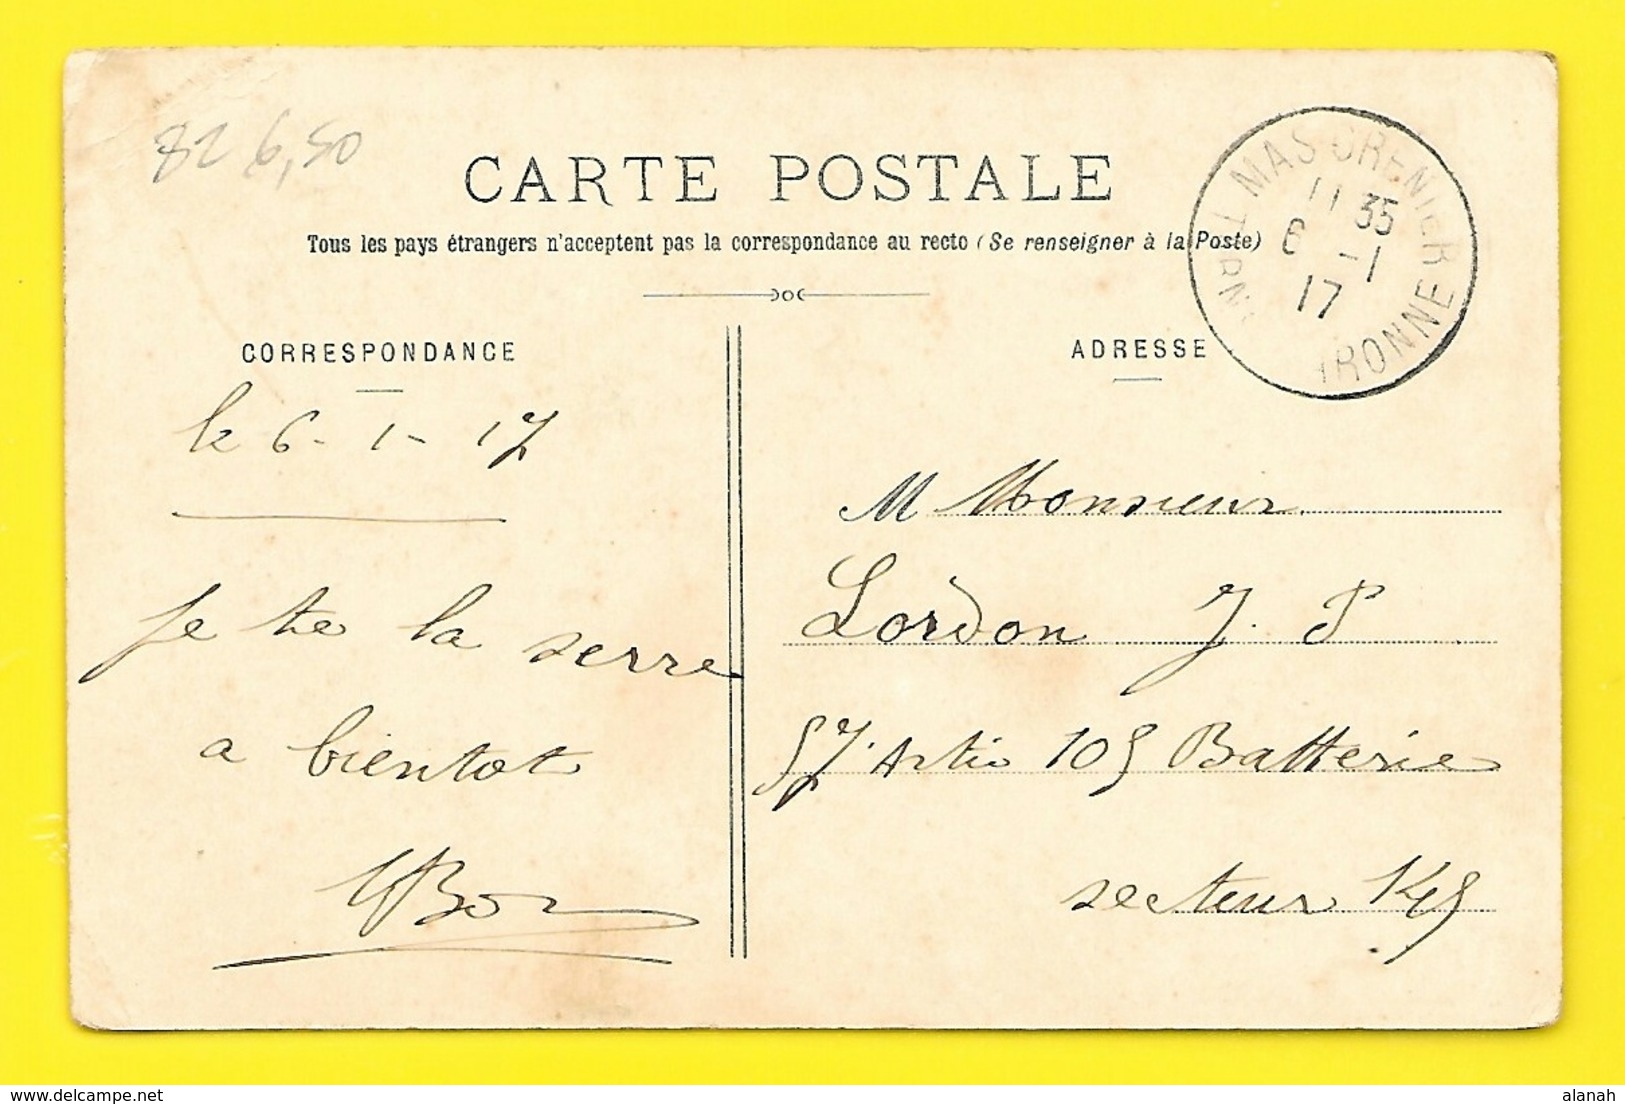 82 6,50
CARTE POSTALE
Tous les pays étrangers n'acceptent pas la correspondance au recto (Se renseigner à la Poste)
MAS GRENIER
11 35
6 -1
17
CORRESPONDANCE
le 6-1-17
Je te la serre
a bientot
ADRESSE
M Monsieur
Lordon J. P
57 Artie 105 Batterie
secteur 145
https://www.delcampe.net
alanah